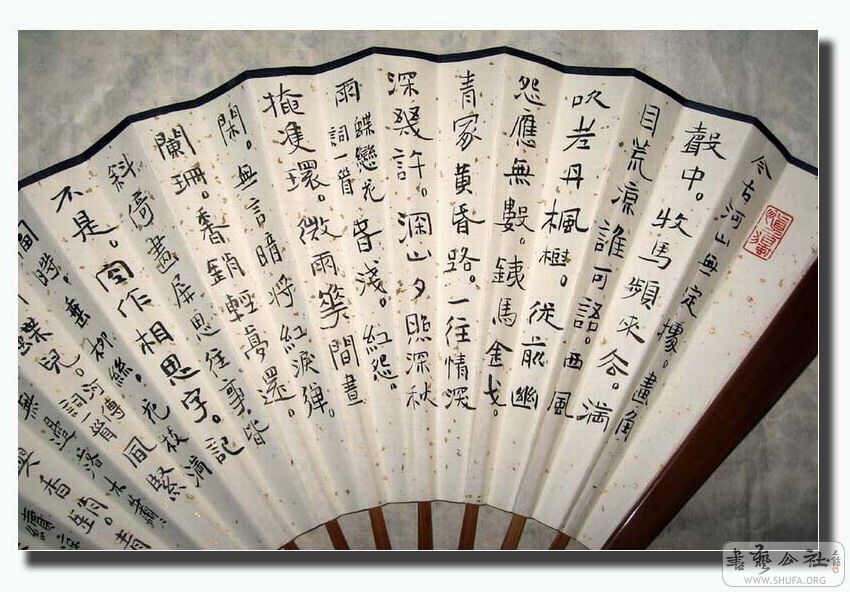 今古河山無定據。畫角
聲中。牧馬頻來去。滿
目荒涼誰可語。西風
吹老丹楓樹。從前幽
怨應無數。銕馬金戈。
青冢黃昏路。一往情深
深幾許。深山夕照深秋
雨
蝶戀花
詞一首
春淺。紅怨。
掩雙環。微雨花間晝
閑。無言暗將紅淚彈。
闌珊。香銷輕夢還。
斜倚畫屏思往事。皆
不是。空作相思字。記
時。垂柳絲。花枝。滿
蝶兒。
河傳
詞一首
書藝公社
WWW.SHUFA.ORG